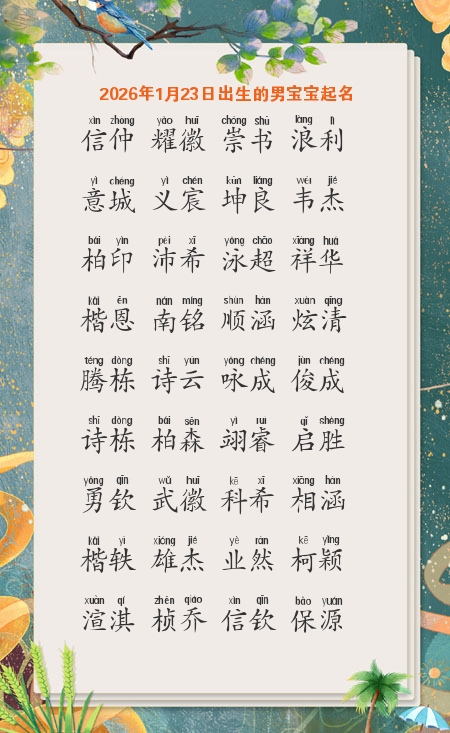 2026年1月23日出生的男宝宝起名
xìn zhòng yào huī chóng shū làng lì
信仲 耀徽 崇书 浪利
yì chéng yì chén kūn liáng wéi jié
意城 义宸 坤良 韦杰
bǎi yìn pèi xī yǒng chāo xiáng huá
柏印 沛希 泳超 祥华
kǎi ēn nán míng shùn hán xuàn qīng
楷恩 南铭 顺涵 炫清
téng dòng shī yún yǒng chéng jùn chéng
腾栋 诗云 咏成 俊成
shī dòng bǎi sēn yì ruì qǐ shèng
诗栋 柏森 翊睿 启胜
yǒng qīn wǔ huī kē xī xiāng hán
勇钦 武徽 科希 相涵
kǎi yì xióng jié yè rán kē yǐng
楷轶 雄杰 业然 柯颖
xuān qí zhēn qiáo xìn qīn bǎo yuán
渲淇 桢乔 信钦 保源